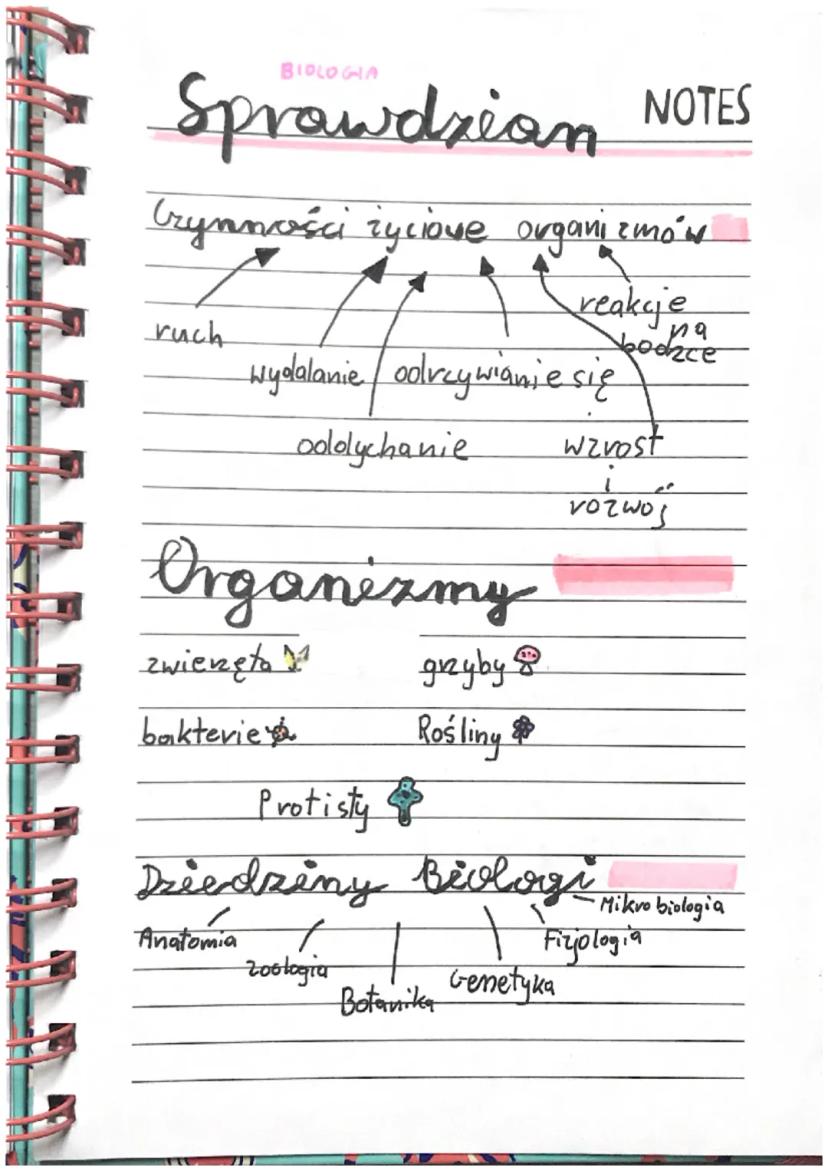 BIOLOGIA
Sprawdzian
NOTES
Czynności życiowe organizmów
reakcje
na
bodzce
ruch
wydalanie
odrzywianie się
oddychanie
wzrost
i
rozwój
Organizmy
zwierzęta
grzyby
bakterie
Rośliny
Protisty
Dziedziny Biologi
Mikrobiologia
Anatomia
Fizjologia
zoologia
Genetyka
Botanika